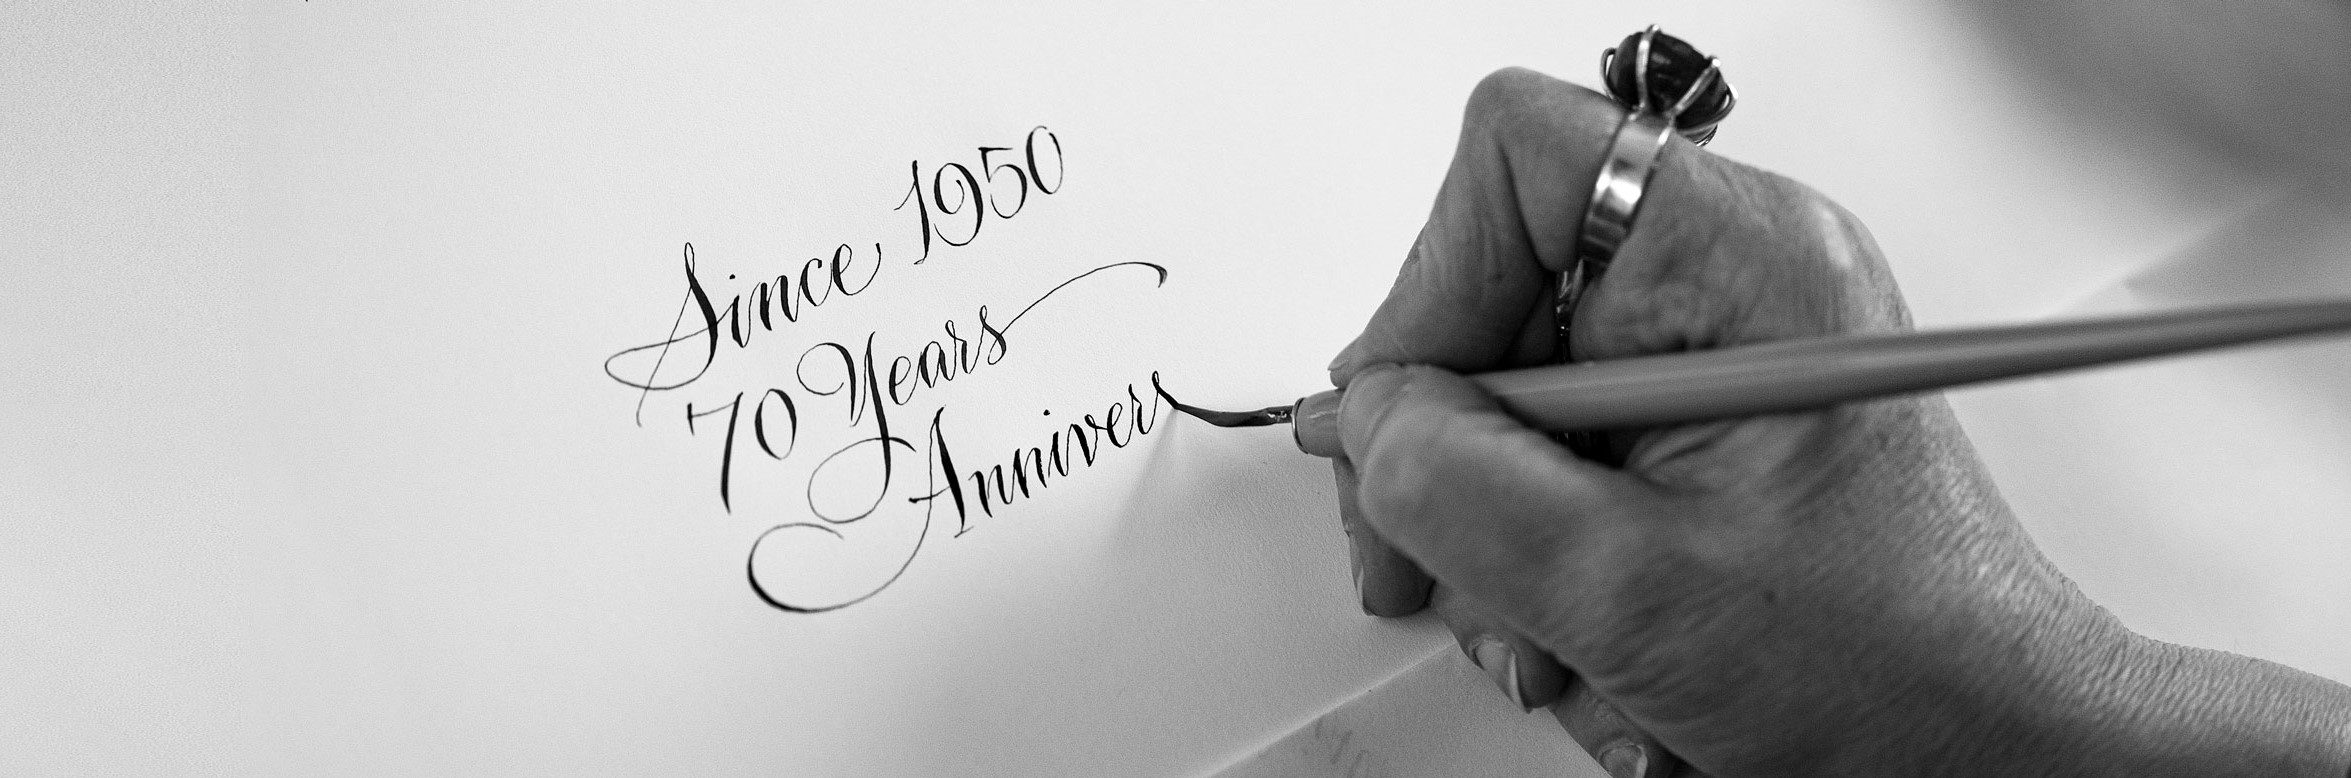 Since 1950
70 Years
Annivers